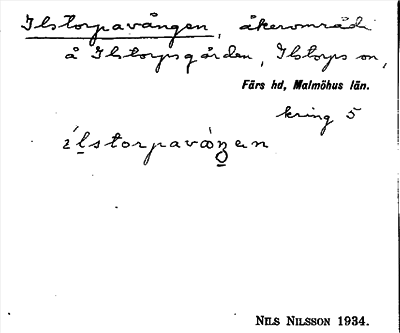 Ilstorpavången, åkerområde
å Ilstorpsgården, Ilstorps sn,
Färs hd, Malmöhus län.
kring 5
ílstorpavàŋen
NILS NILSSON 1934.